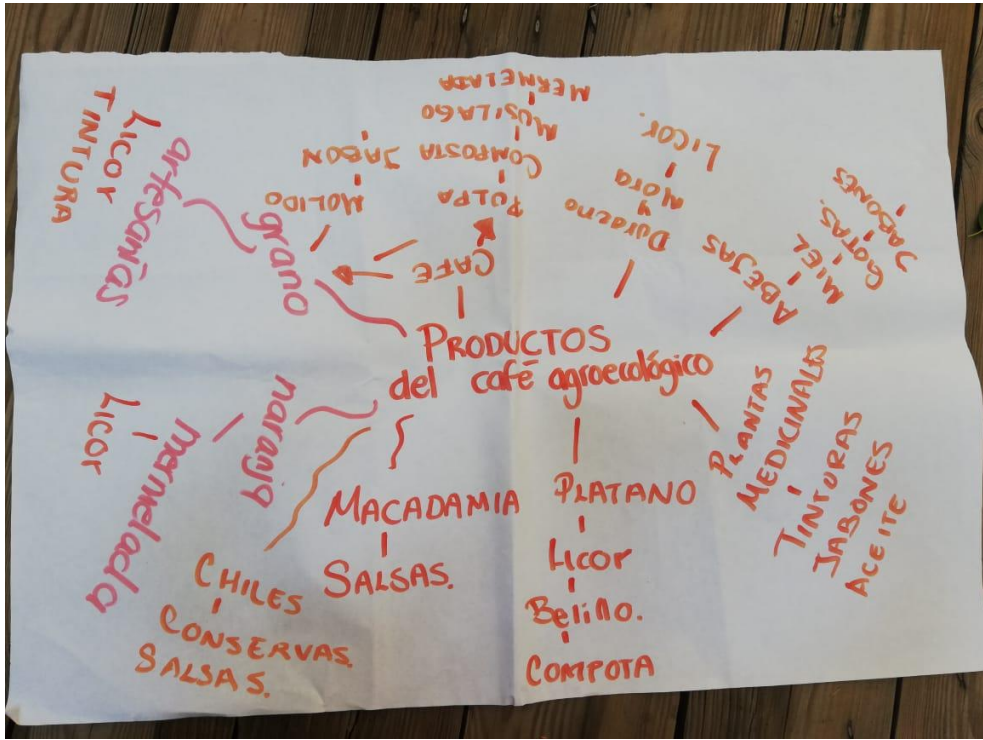 PRODUCTOS
del café agroecológico
CAFÉ
PULPA
COMPOSTA
MUSILAGO
MERMELADA
grano
MOLIDO
JABON
artesanías
LICOr
TINTURA
Durazno
y
MOra
LICOr.
ABEJAS
MIEL
GOTAS.
JABONES
PLANTAS
MEDICINALES
TINTURAS
JABONES
ACEITE
PLATANO
Licor
Beliño.
COMPOTA
MACADAMIA
SALSAS.
CHILES
CONSERVAS.
SALSAS.
naranja
mermelada
LICOr